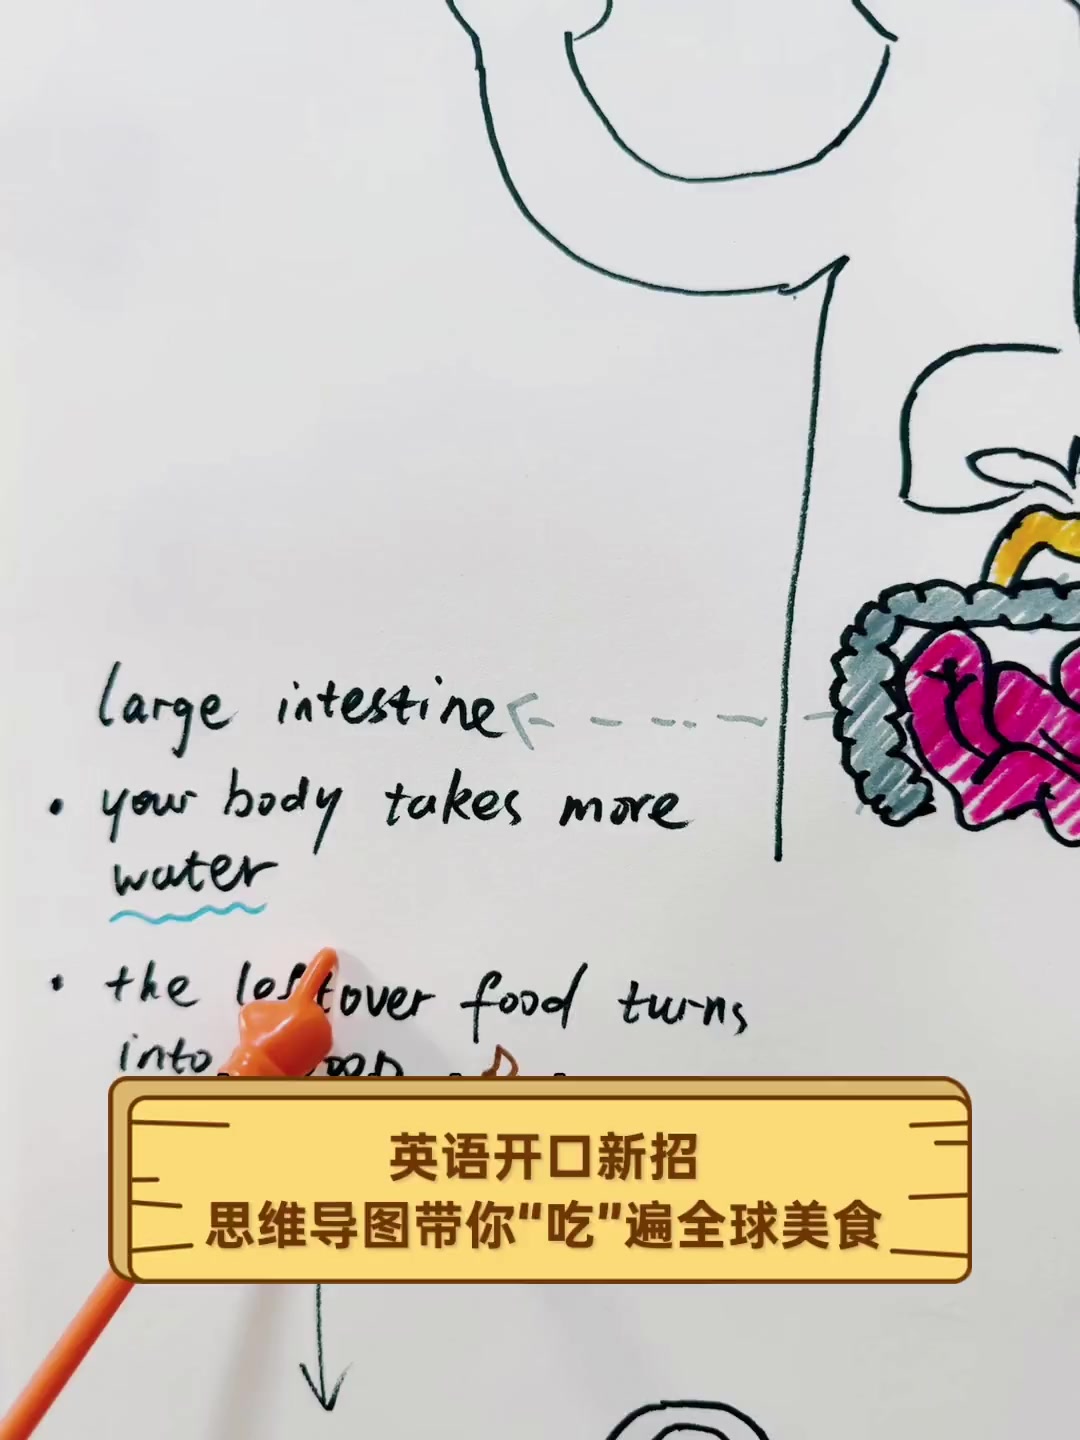 large intestine
• your body takes more
water
• the leftover food turns
into
英语开口新招
思维导图带你“吃”遍全球美食